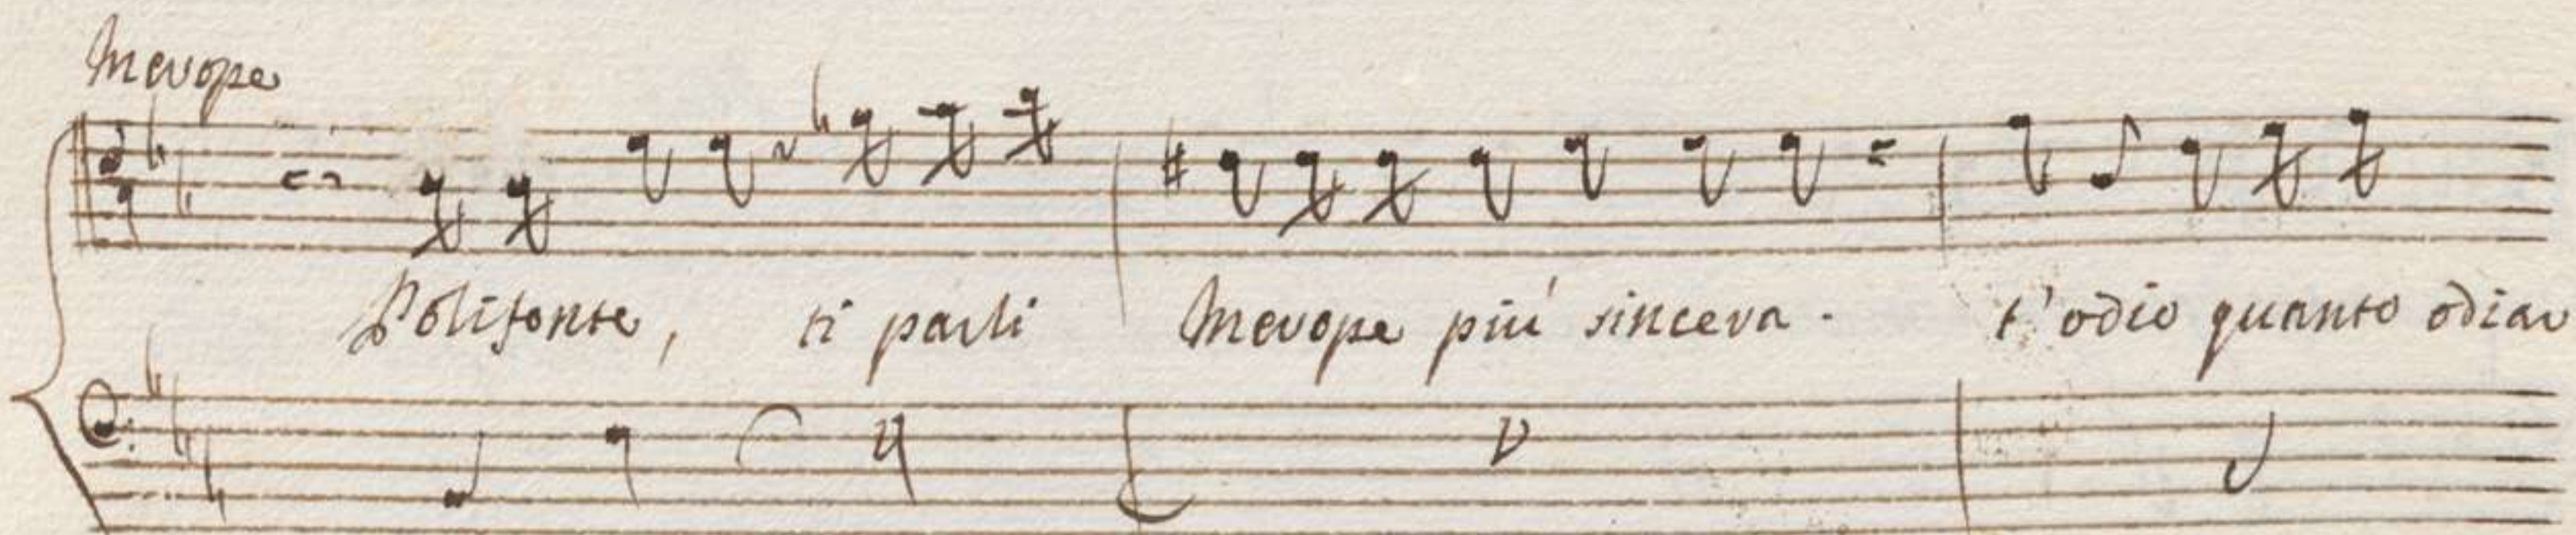 Merope
Polifonte, ti parli Merope più sincera. t'odio quanto odiar